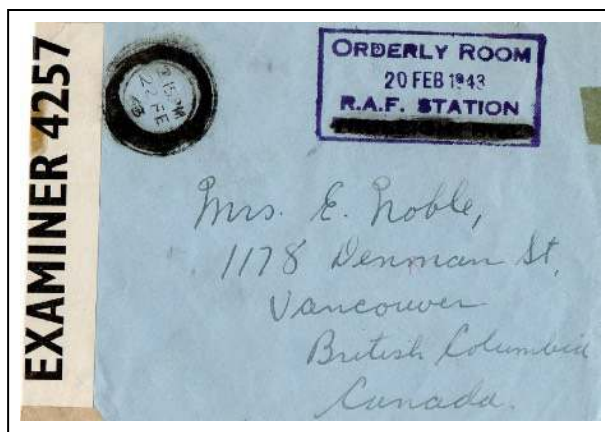 EXAMINER 4257
ORDERLY ROOM
20 FEB 1943
R.A.F. STATION
22 FE
43
Mrs. E. Noble,
1178 Denman St,
Vancouver
British Columbia
Canada.